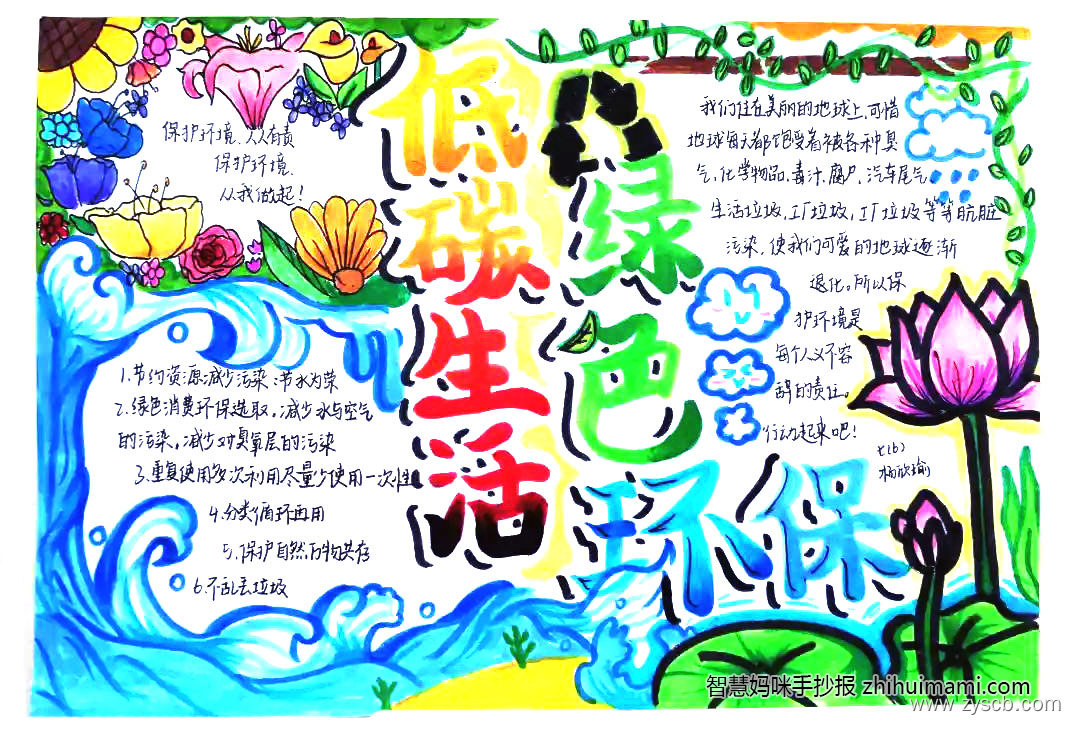 保护环境,人人有责
保护环境.
从我做起!
低碳生活
绿色
环保
1.节约资源减少污染:节水为荣
2.绿色消费环保选取,减少水与空气
的污染,减少对臭氧层的污染
3.重复使用多次利用尽量少使用一次性
4.分类循环再用
5.保护自然万物共存
6.不乱丢垃圾
我们住在美丽的地球上,可惜
地球每天都饱受着被各种臭
气,化学物品,毒汁,腐尸,汽车尾气,
生活垃圾,工厂垃圾,工厂垃圾等等肮脏
污染,使我们可爱的地球逐渐
退化。所以保
护环境是
每个人义不容
辞的责任。
行动起来吧!
七(6)
智慧妈咪手抄报 zhihuimami.com
www.zyscb.com